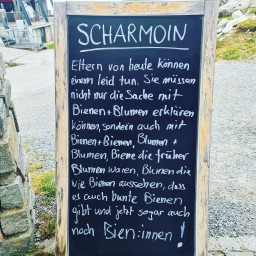 SCHARMOIN
Eltern von heute können
einem leid tun. Sie müssen
nicht nur die Sache mit
Bienen + Blumen erklären
können, sondern auch mit
Bienen + Bienen, Blumen +
Blumen, Biene die früher
Blumen waren, Blumen die
wie Bienen aussehen, dass
es auch bunte Bienen
gibt und jetzt sogar auch
noch Bien:innen!